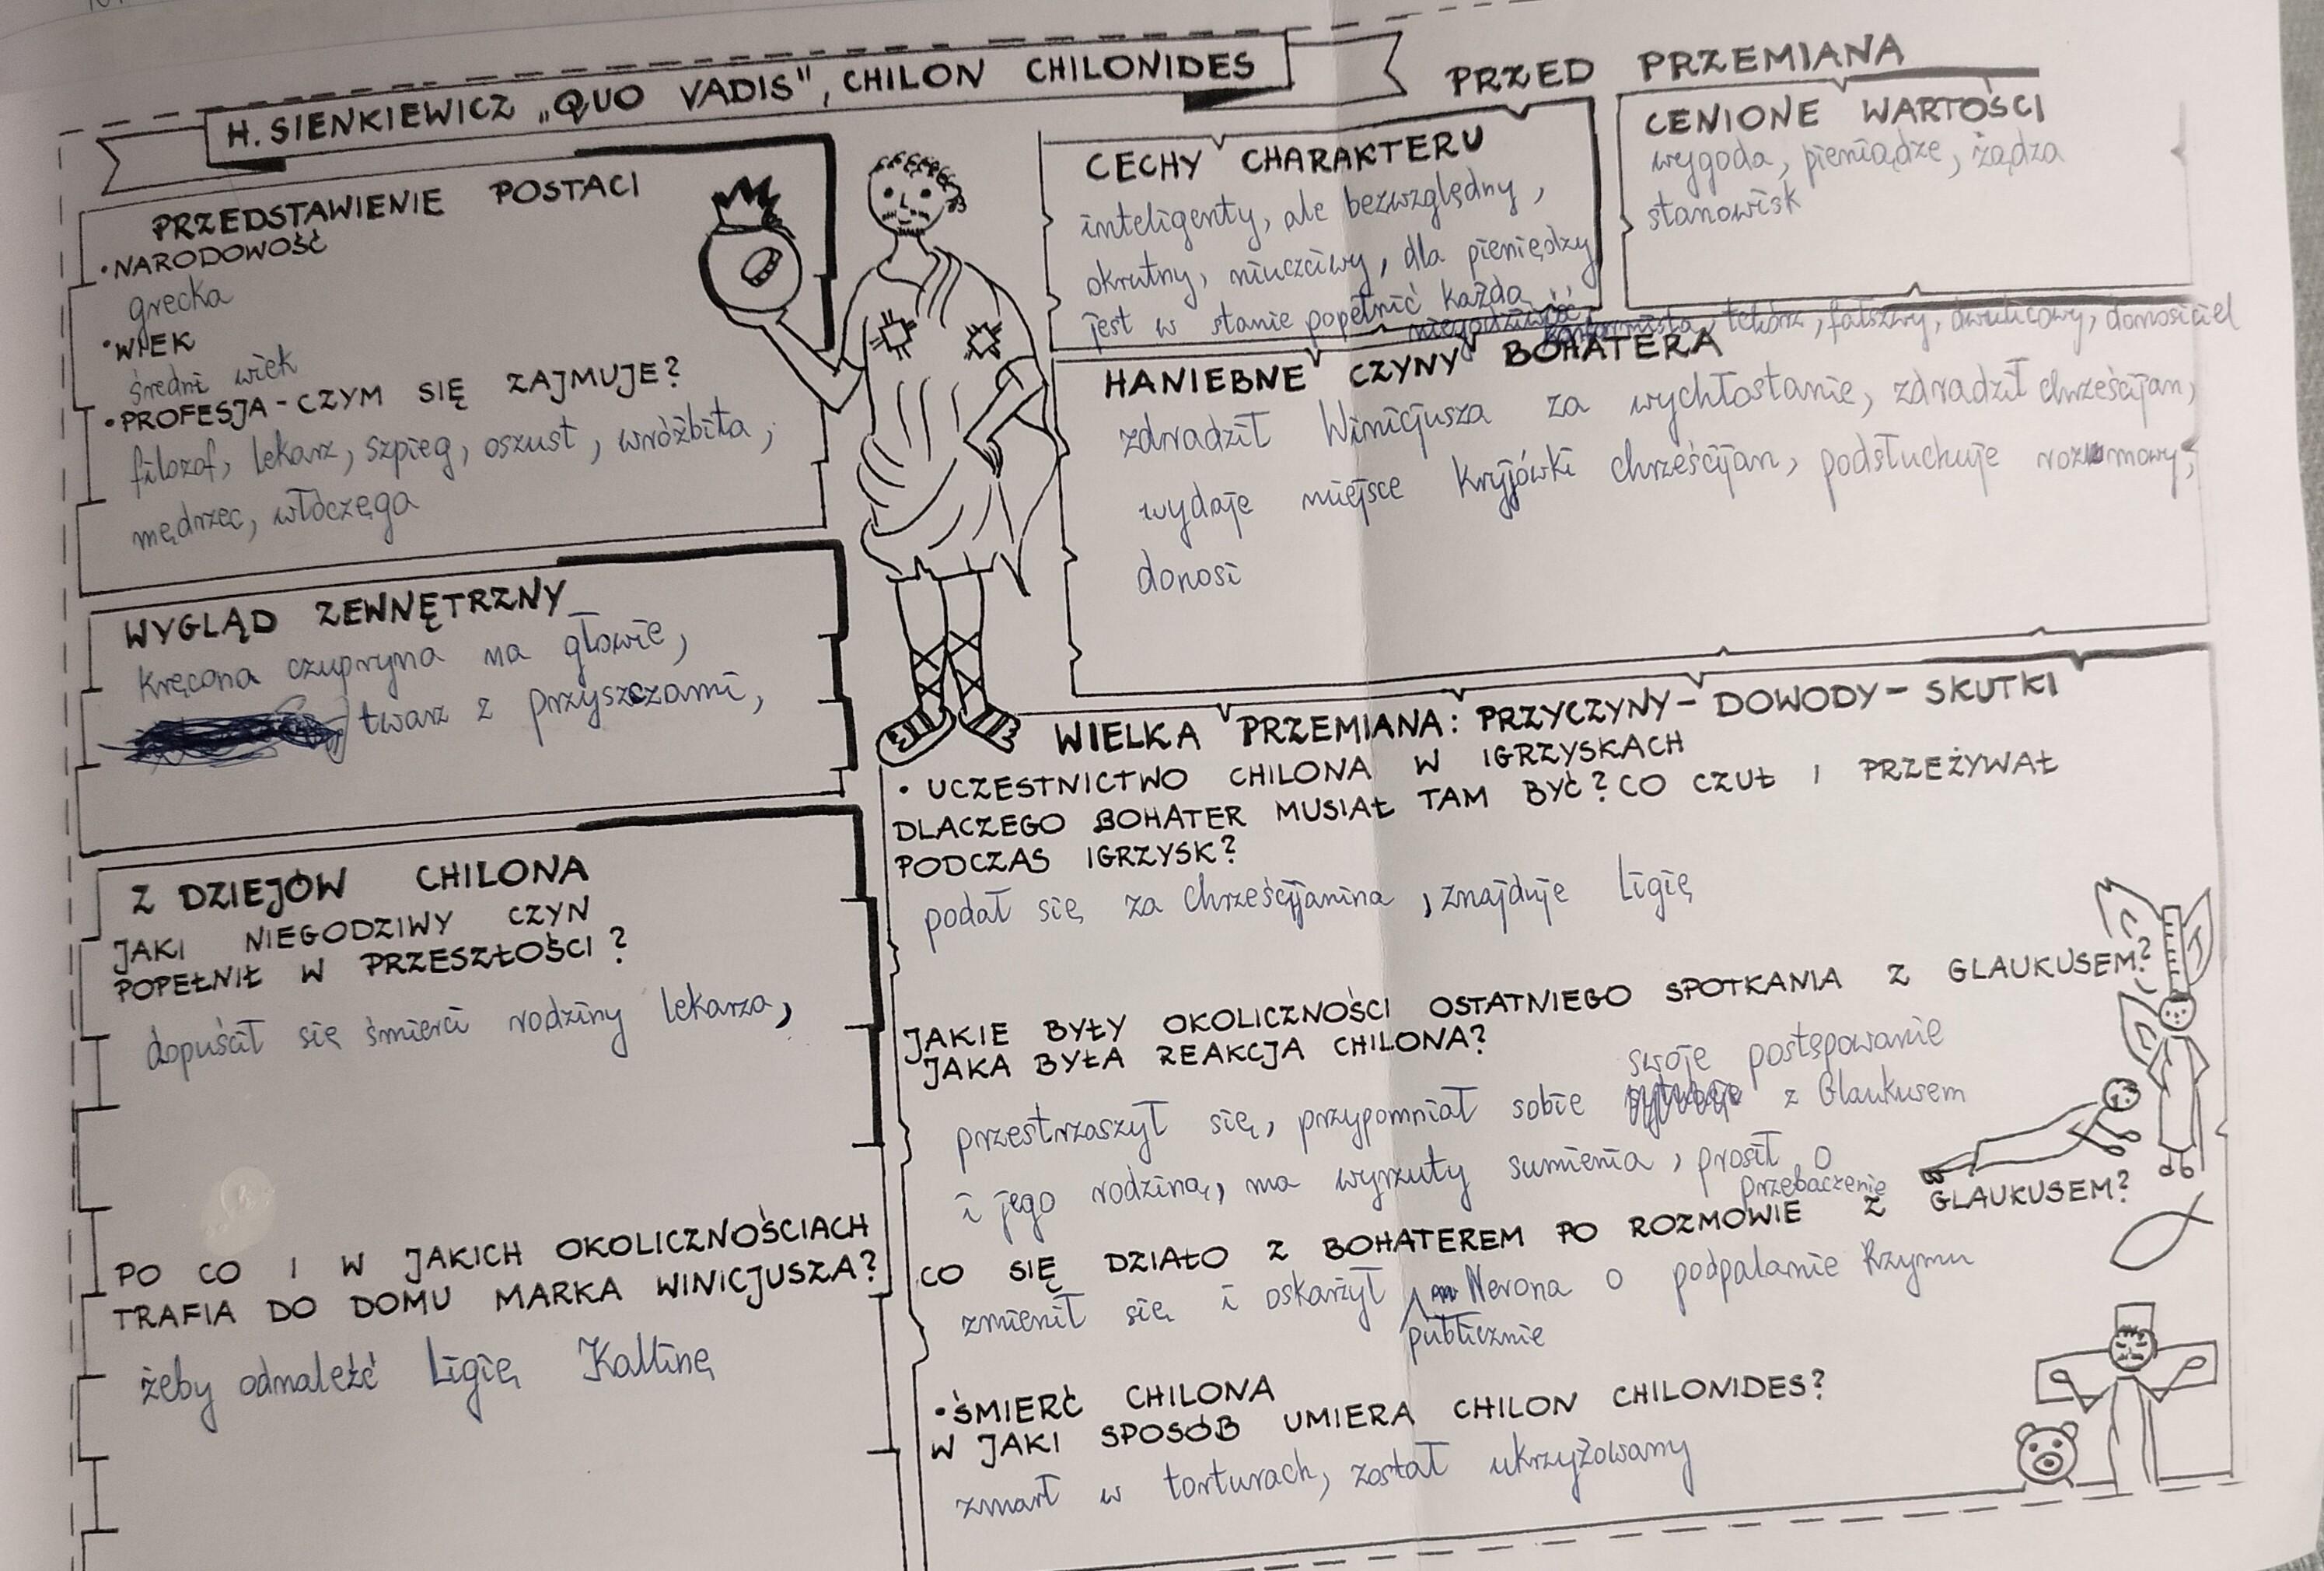 H. SIENKIEWICZ „QUO VADIS", CHILON CHILONIDES
PRZEDSTAWIENIE POSTACI
• NARODOWOŚĆ
grecka
• WIEK
średni wiek
• PROFESJA - CZYM SIĘ ZAJMUJE?
filozof, lekarz, szpieg, oszust, wróżbita,
mędrzec, włóczęga
WYGLĄD ZEWNĘTRZNY
kręcona czupryna na głowie,
twarz z pryszczami,
Z DZIEJÓW CHILONA
JAKI NIEGODZIWY CZYN
POPEŁNIŁ W PRZESZŁOŚCI?
dopuścił się śmierci rodziny lekarza,
PO CO I W JAKICH OKOLICZNOŚCIACH
TRAFIA DO DOMU MARKA WINICJUSZA?
żeby odnaleźć Ligię Kallinę
PRZED PRZEMIANĄ
CECHY CHARAKTERU
inteligenty, ale bezwzględny,
okrutny, niuczciwy, dla pieniędzy
jest w stanie popełnić każdą
niegodziwość, tchórz, fałszywy, dwulicowy, donosiciel
CENIONE WARTOŚCI
wygoda, pieniądze, żądza
stanowisk
HANIEBNE CZYNY BOHATERA
zdradził Winicjusza za wychłostanie, zdradził chrześcijan,
wydaje miejsce kryjówki chrześcijan, podsłuchuje rozmowy,
donosi
WIELKA PRZEMIANA: PRZYCZYNY - DOWODY - SKUTKI
• UCZESTNICTWO CHILONA W IGRZYSKACH
DLACZEGO BOHATER MUSIAŁ TAM BYĆ? CO CZUŁ I PRZEŻYWAŁ
PODCZAS IGRZYSK?
podał się za Chrześcijanina, znajduje Ligię
JAKIE BYŁY OKOLICZNOŚCI OSTATNIEGO SPOTKANIA Z GLAUKUSEM?
JAKA BYŁA REAKCJA CHILONA?
swoje postępowanie
przestrzaszył się, przypomniał sobie z Glaukusem
i jego rodziną, ma wyrzuty sumienia, prosił o
przebaczenie
CO SIĘ DZIAŁO Z BOHATEREM PO ROZMOWIE Z GLAUKUSEM?
zmienił się i oskarżył Nerona o podpalanie Rzymu
publicznie
• ŚMIERĆ CHILONA
W JAKI SPOSÓB UMIERA CHILON CHILONIDES?
zmarł w torturach, został ukrzyżowany